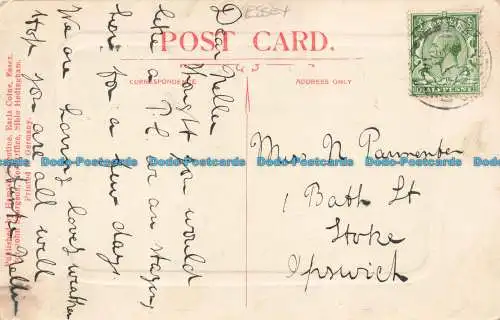 ESSEX
POST CARD.
CORRESPONDENCE
ADDRESS ONLY
HALFPENNY
Dear Nellie
thought you would
like a P.C. I am staying
here for a few days.
We are having lovely weather
Hope you are all well
Nellie
Miss N Parmenter
1 Bath St
Stoke
Ipswich
Office, Earls Colne, Essex.
Office, Sible Hedingham.
Printed in Germany.
Dodo-Postcards Dodo-Postcards Dodo-Postcards Dodo-Postcards Dodo-Postcards